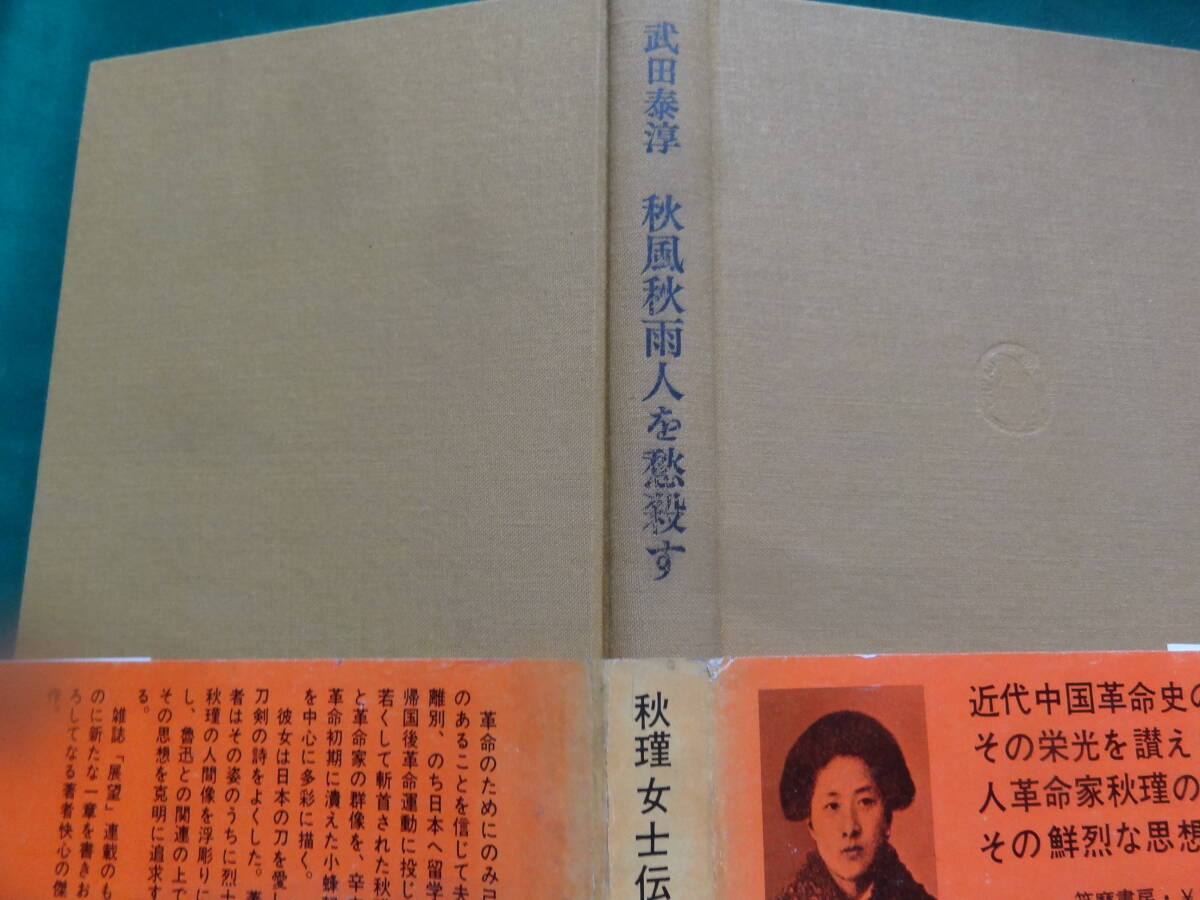 武田泰淳 秋風秋雨人を愁殺す
秋瑾女士伝
近代中国革命史の
その栄光を讃え
人革命家秋瑾の
その鮮烈な思想
筑摩書房・¥
革命のためにのみ己
のあることを信じて夫
離別、のち日本へ留学
帰国後革命運動に投じ
若くして斬首された秋
と革命家の群像を、辛
革命初期に潰えた小蜂
を中心に多彩に描く。
彼女は日本の刀を愛し
刀剣の詩をよくした。著
者はその姿のうちに烈士
秋瑾の人間像を浮彫りに
し、魯迅との関連の上で
その思想を克明に追求す
る。
雑誌「展望」連載のも
のに新たな一章を書きお
ろしてなる著者快心の傑
作。